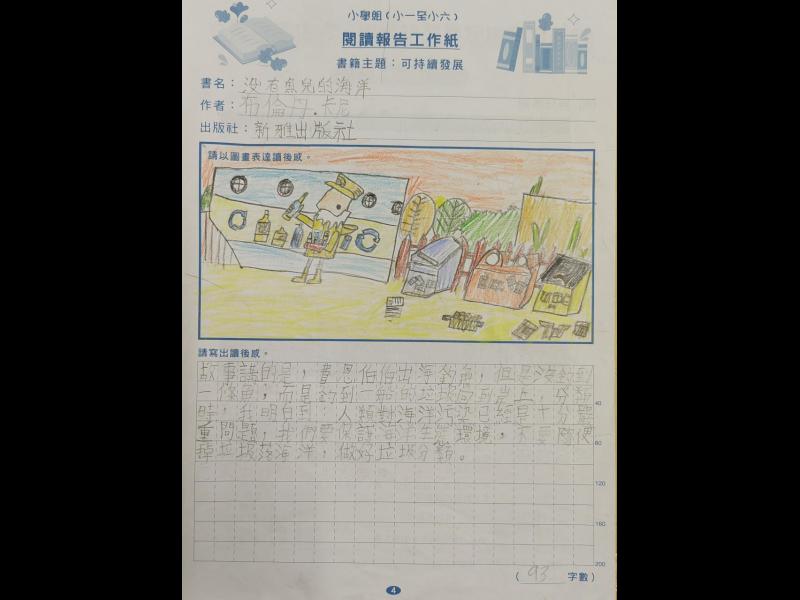 小學組（小一至小六）
閱讀報告工作紙
書籍主題：可持續發展
書名：沒有魚兒的海洋
作者：布倫丹．卡尼
出版社：新雅出版社
請以圖畫表達讀後感。
請寫出讀後感。
故事講的是，費恩伯伯出海釣魚，但是沒釣到
一條魚，而是釣到一船的垃圾回到岸上，分類
時，我明白到：人類對海洋污染已經是十分嚴
重問題，我們要保護海洋生態環境，不要隨便
掉垃圾落海洋，做好垃圾分類。
40
80
120
160
200
（93 字數）
4